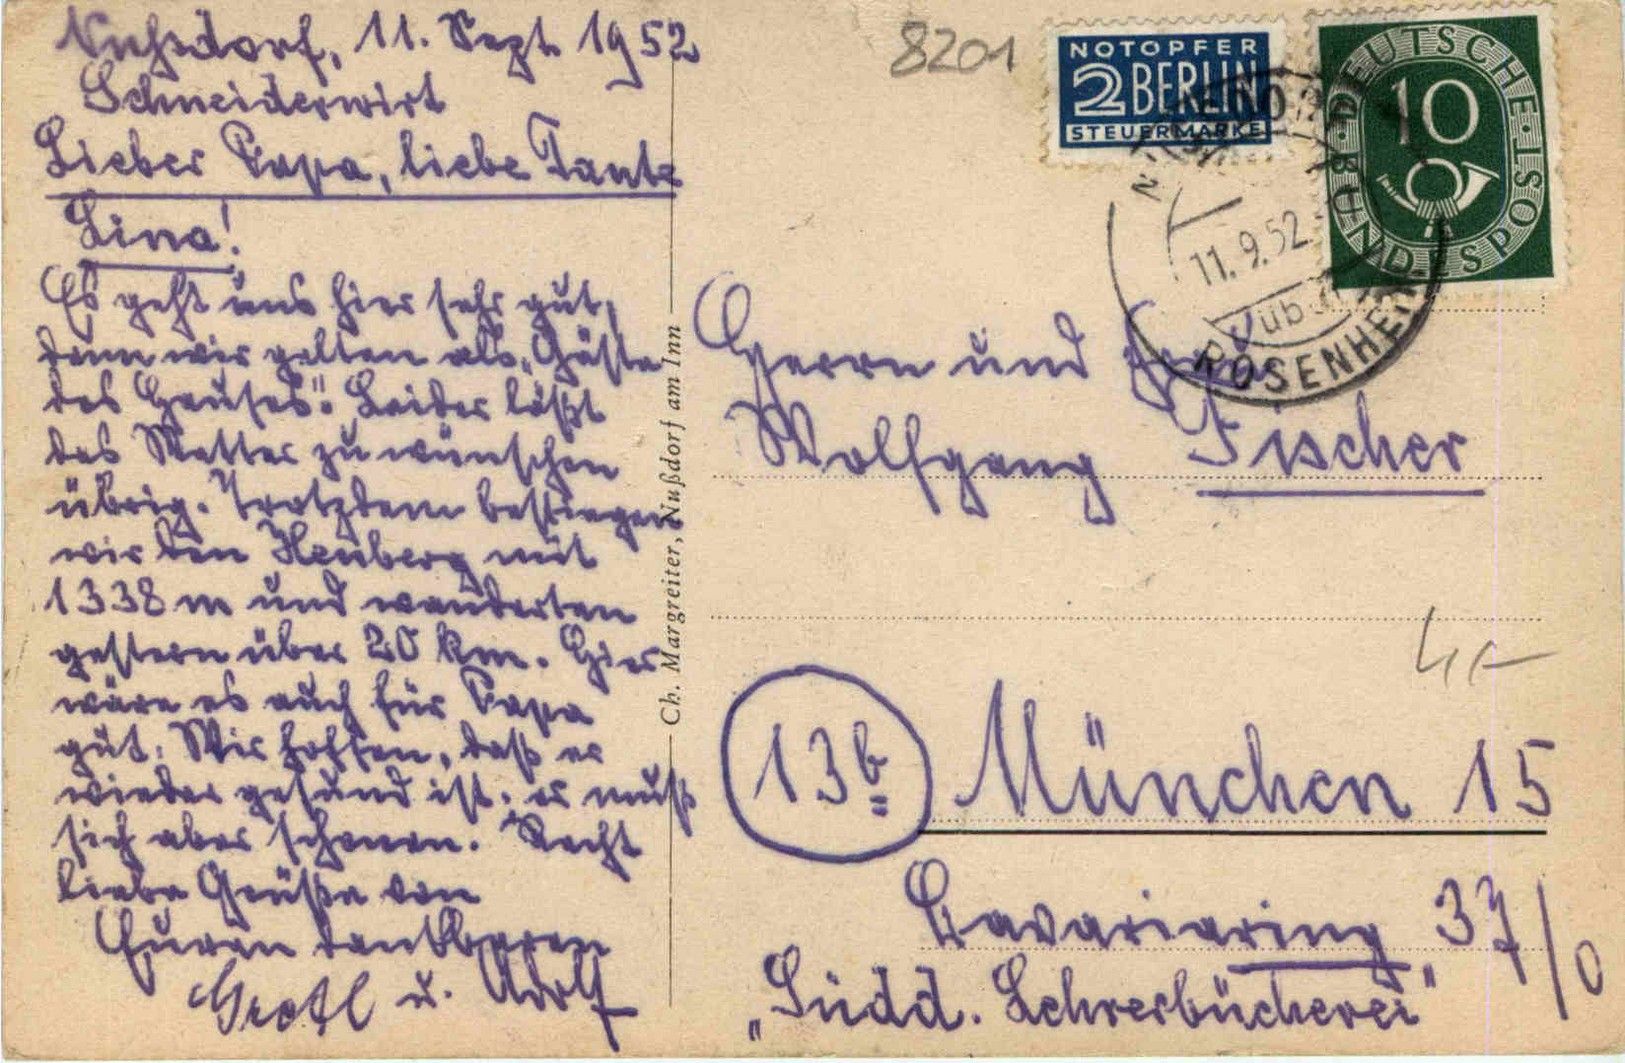 Nußdorf, 11. Sept. 1952
Schneiderwirt
Lieber Papa, liebe Tante
Lina!
Es geht uns hier sehr gut,
denn wir gelten als „Gäste
des Hauses“. Leider läßt
das Wetter zu wünschen
übrig. Trotzdem bestiegen
wir den Heuberg mit
1338 m und wanderten
gestern über 20 km. Hier
wäre es auch für Papa
gut. Wir hoffen, daß er
wieder gesund ist. er muß
sich aber schonen. Recht
liebe Grüße von
Euren dankbaren
Gretl u. Adolf
Ch. Margreiter, Nußdorf am Inn
8201
NOTOPFER
2 BERLIN
STEUERMARKE
DEUTSCHE BUNDESPOST
10
11.9.52
über
ROSENHEIM
Herrn und Frau
Wolfgang Fischer
13b
München 15
Bavariaring 37/0
„Südd. Lehrerbücherei“